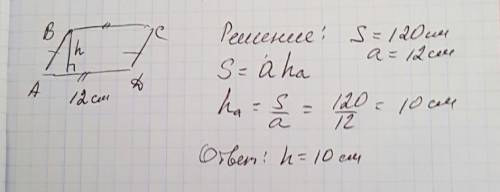 B C
h
A D
12 см
Решение: S = 120 см
a = 12 см
S = a hₐ
hₐ = S/a = 120/12 = 10 см
Ответ: h = 10 см